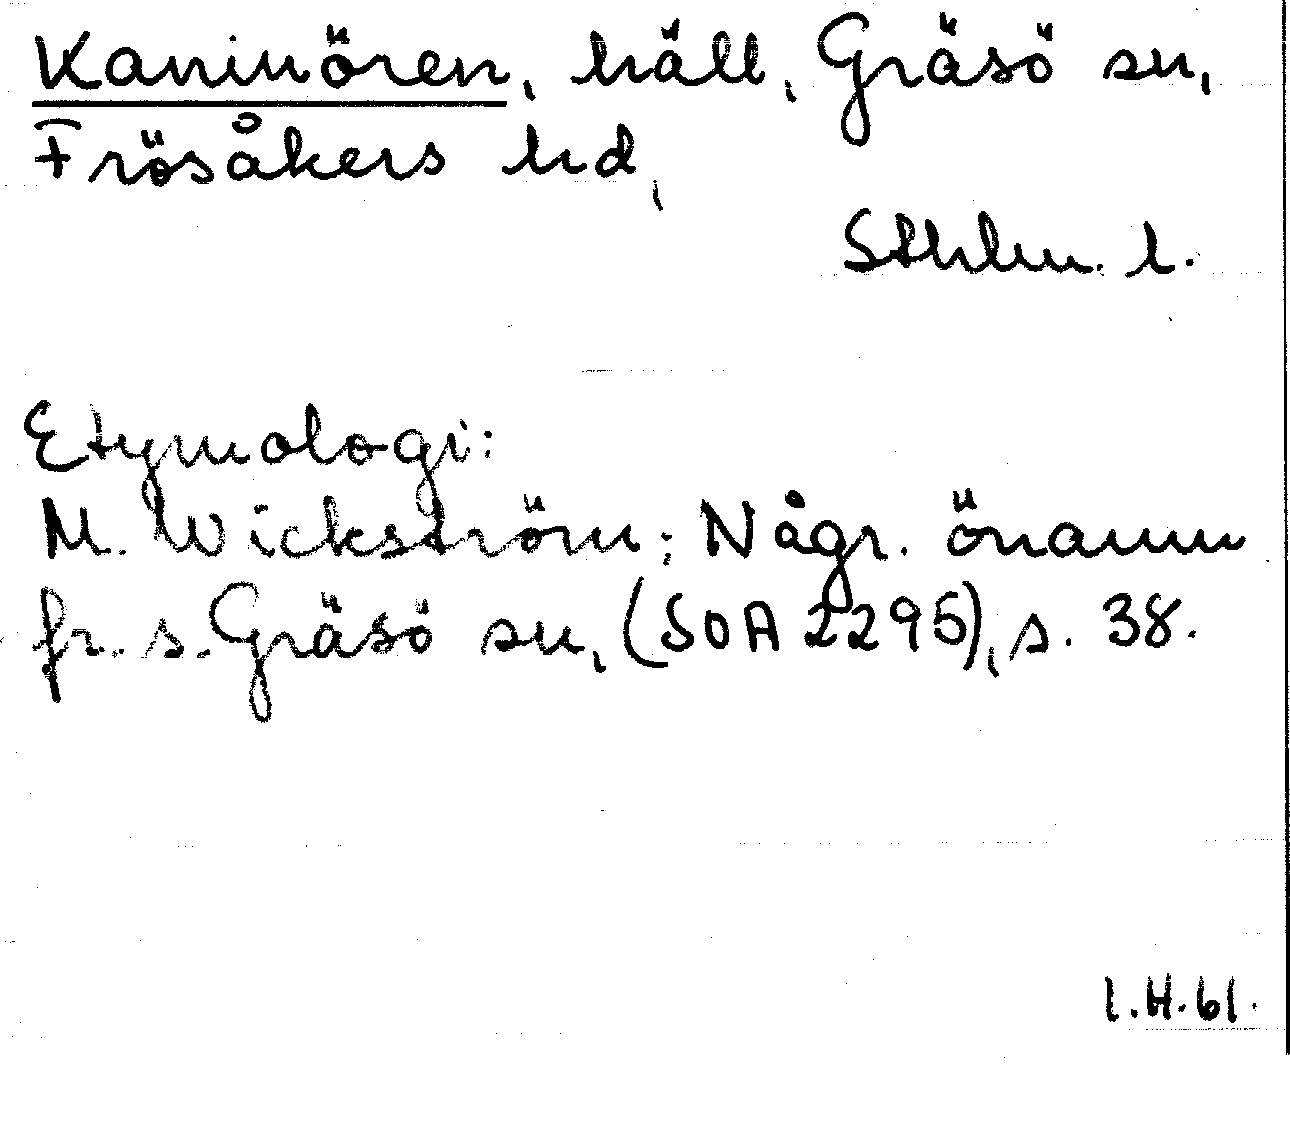 Kaninören, häll, Gräsö sn,
Frösåkers hd,
Sthlm. l.
Etymologi:
M. Wickström; Någr. önamn
fr. s. Gräsö sn, (SOA 2295), s. 38.
I.H.61.